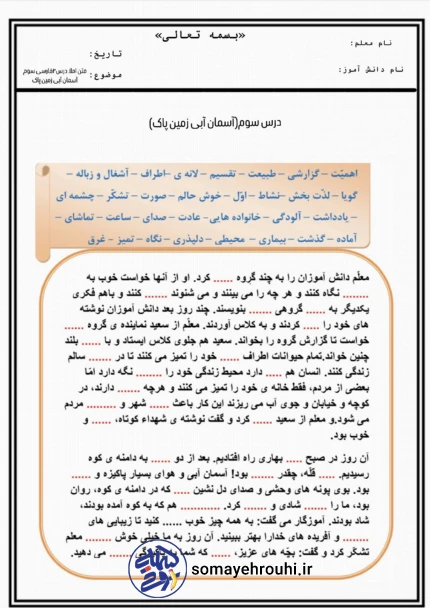 «بسمه تعالی»
نام معلم:
تاریخ:
نام دانش آموز:
موضوع: متن املا درس ۳فارسی سوم
آسمان آبی زمین پاک
درس سوم(آسمان آبی زمین پاک)
اهمیّت – گزارشی – طبیعت – تقسیم – لانه ی –اطراف – آشغال و زباله –
گویا – لذّت بخش –نشاط – اوّل – خوش حالم – صورت – تشکّر – چشمه ای
– یادداشت – آلودگی – خانواده هایی- عادت – صدای – ساعت – تماشای –
آماده – گذشت – بیماری – محیطی – دلپذیری – نگاه – تمیز – غرق
معلّم دانش آموزان را به چند گروه ...... کرد. او از آنها خواست خوب به
........ نگاه کنند و هر چه را می بینند و می شنوند ....... کنند و باهم فکری
یکدیگر به ...... گروهی ....... بنویسند. چند روز بعد دانش آموزان نوشته
های خود را ..... کردند و به کلاس آوردند. معلّم از سعید نماینده ی گروه ......
خواست تا گزارش گروه را بخواند. سعید هم جلوی کلاس ایستاد و با ...... بلند
چنین خواند.تمام حیوانات اطراف ...... خود را تمیز می کنند تا در ...... سالم
زندگی کنند. انسان هم .... دارد محیط زندگی خود را ........ نگه دارد امّا
بعضی از مردم، فقط خانه ی خود را تمیز می کنند و هرچه ....... دارند، در
کوچه و خیابان و جوی آب می ریزند این کار باعث ...... شهر و ......... مردم
می شود.و معلم از سعید ...... کرد و گفت نوشته ی شهداء کوتاه، ...... و
خوب بود.
آن روز در صبح ..... بهاری راه افتادیم. بعد از دو ...... به دامنه ی کوه
رسیدیم. .... قلّه، چقدر ........ بود! آسمان آبی و هوای بسیار پاکیزه و ......
بود. بوی پونه های وحشی و صدای دل نشین ..... که در دامنه ی کوه، روان
بود، ما را ...... شادی و ...... کرد. .......... هم که به کوه آمده بودند،
شاد بودند. آموزگار می گفت: به همه چیز خوب ...... کنید تا زیبایی های
....... و آفریده های خدارا بهتر ببینید. آن روز به ما خیلی خوش ........ معلم
تشکّر کرد و گفت: بچّه های عزیز، ..... که شما می دهید.
somayehrouhi.ir